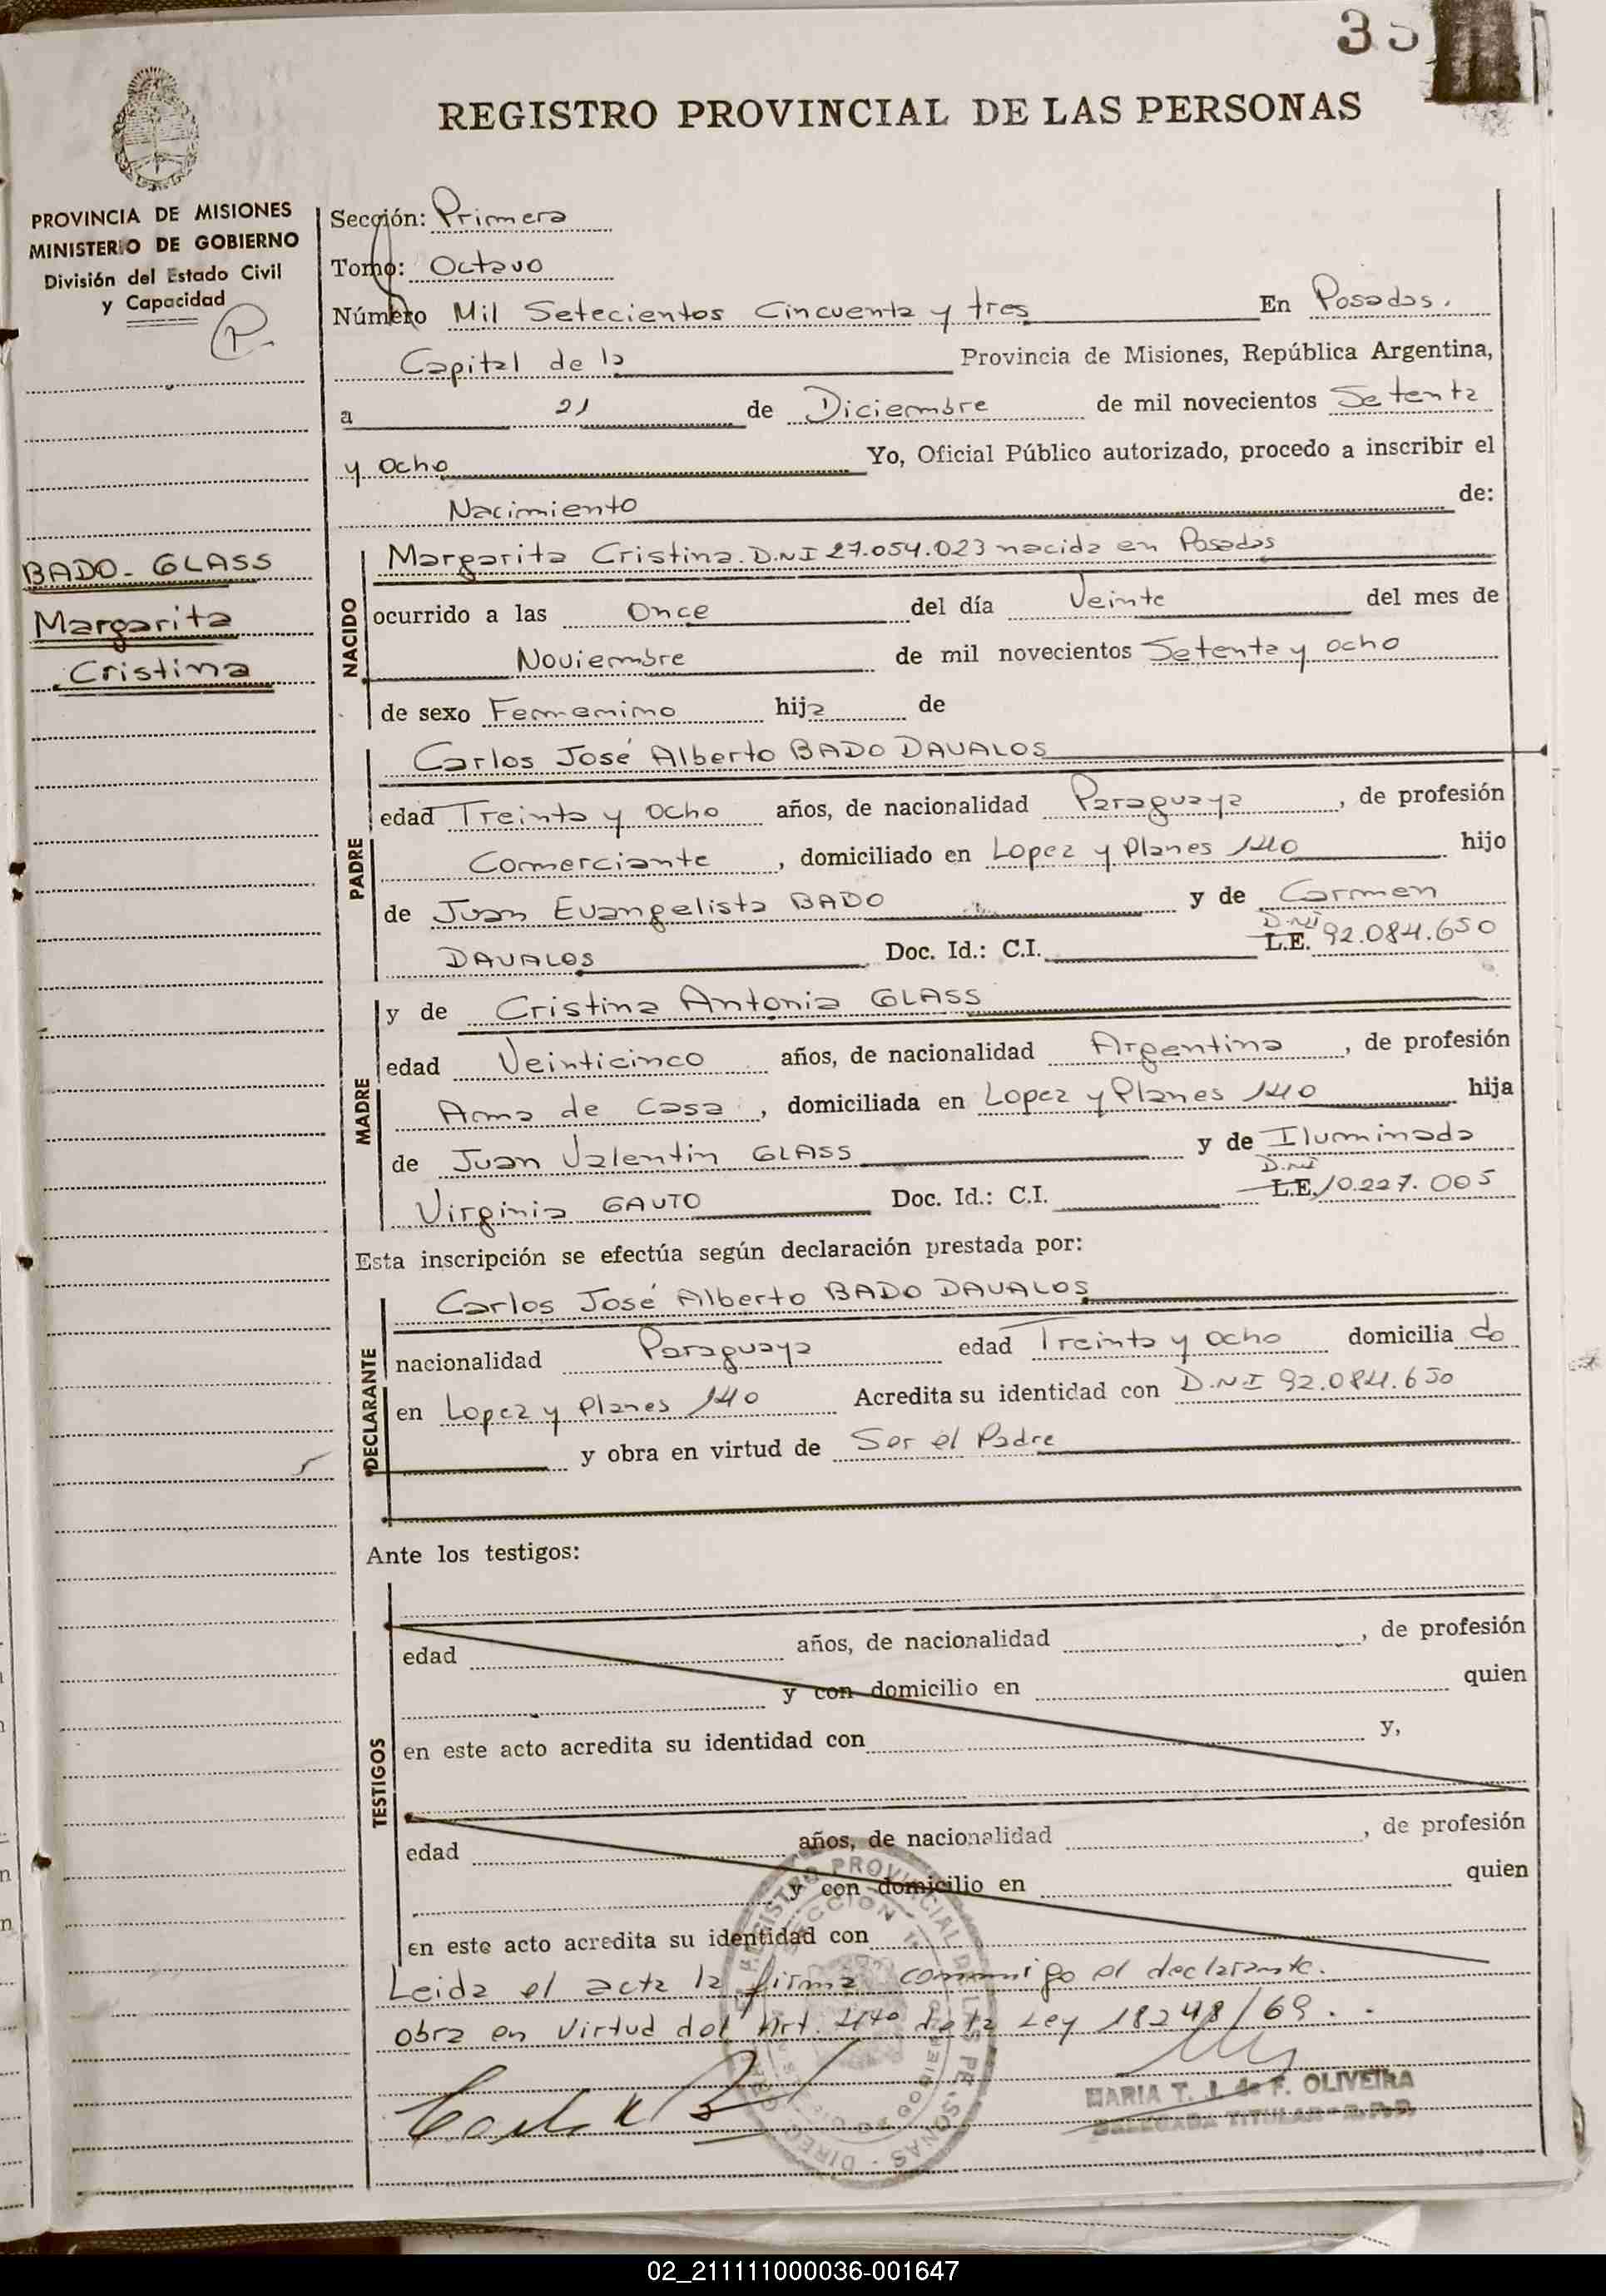 35
REGISTRO PROVINCIAL DE LAS PERSONAS
PROVINCIA DE MISIONES
MINISTERIO DE GOBIERNO
División del Estado Civil
y Capacidad
BADO-GLASS
Margarita
Cristina
Sección: Primera
Tomo: Octavo
Número Mil Setecientos Cincuenta y tres En Posadas.
Capital de la Provincia de Misiones, República Argentina,
a 21 de Diciembre de mil novecientos Setenta
y ocho Yo, Oficial Público autorizado, procedo a inscribir el
Nacimiento de:
NACIDO
Margarita Cristina. D.N.I 27.054.023 nacida en Posadas
ocurrido a las Once del día Veinte del mes de
Noviembre de mil novecientos Setenta y ocho
de sexo Femenino hija de
PADRE
Carlos José Alberto BADO DAVALOS
edad Treinta y Ocho años, de nacionalidad Paraguaya, de profesión
Comerciante, domiciliado en Lopez y Planes 140 hijo
de Juan Evangelista BADO y de Carmen
DAVALOS Doc. Id.: C.I. L.E. D.NI 92.084.650
MADRE
y de Cristina Antonia GLASS
edad Veinticinco años, de nacionalidad Argentina, de profesión
Ama de Casa, domiciliada en Lopez y Planes 140 hija
de Juan Valentin GLASS y de Iluminada
Virginia GAUTO Doc. Id.: C.I. L.E. D.NI 10.227.005
Esta inscripción se efectúa según declaración prestada por:
DECLARANTE
Carlos José Alberto BADO DAVALOS
nacionalidad Paraguaya edad Treinta y ocho domicilia do
en Lopez y Planes 140 Acredita su identidad con D.N.I 92.084.650
y obra en virtud de Ser el Padre
Ante los testigos:
TESTIGOS
edad años, de nacionalidad , de profesión
y con domicilio en quien
en este acto acredita su identidad con y,
edad años, de nacionalidad , de profesión
y con domicilio en quien
en este acto acredita su identidad con
Leida el acta la firma conmigo el declarante.
obra en virtud del Art. 44º de la Ley 18248/69.
MARIA T. J. de F. OLIVEIRA
DELEGADA TITULAR - R.P.P.
02_211111000036-001647